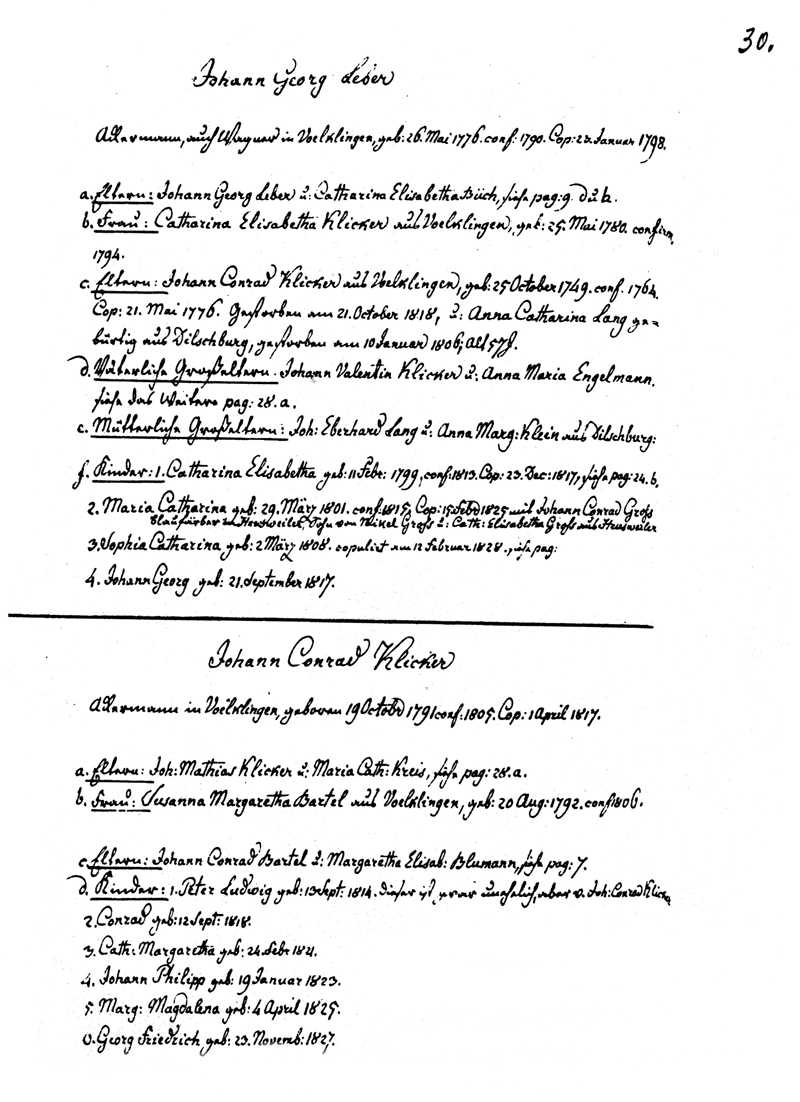 30.
Johann Georg Leber
Ackermann, auch Wagner in Voelklingen, geb: 26. Mai 1776. conf: 1790. Cop: 23. Januar 1798.
a. Eltern: Johann Georg Leber u: Catharina Elisabetha Büch, siehe pag: 9. d u h.
b. Frau: Catharina Elisabetha Klicker aus Voelklingen, geb: 25. Mai 1780. confirm.
1794.
c. Eltern: Johann Conrad Klicker aus Voelklingen, geb: 25 October 1749. conf. 1764.
Cop: 21. Mai 1776. Gestorben am 21. October 1818, u: Anna Catharina Lang ge=
bürtig aus Dilschburg, gestorben am 10 Januar 1806, Alt 57 J.
d. Väterliche Großeltern. Johann Valentin Klicker u: Anna Maria Engelmann.
siehe das Weitere pag: 28. a.
e. Mütterliche Großeltern: Joh: Eberhard Lang u: Anna Marg: Klein aus Dilschburg:
f. Kinder: 1. Catharina Elisabetha geb: 11 Febr: 1799, conf: 1813. Cop: 23. Dec: 1817, siehe pag: 24. b.
2. Maria Catharina geb: 29. März 1801. conf. 1815, Cop: 15 Febr 1825 mit Johann Conrad Groß
Blaufärber zu Heusweiler, Sohn von Nikel Groß u: Cath: Elisabetha Groß aus Heusweiler
3. Sophia Catharina geb: 2 März 1808. copulirt am 12 Februar 1828., siehe pag:
4. Johann Georg geb: 21. September 1817.
Johann Conrad Klicker
Ackermann in Voelklingen, geboren 19 Octobr 1791 conf: 1805. Cop: 1 April 1817.
a. Eltern: Joh: Mathias Klicker u: Maria Cath: Kreis, siehe pag: 28. a.
b. Frau: Susanna Margaretha Bartel aus Voelklingen, geb: 20 Aug: 1792. conf 1806.
c. Eltern: Johann Conrad Bartel u: Margaretha Elisab: Blumann, siehe pag: 7.
d. Kinder: 1. Peter Ludwig geb: 13 Sept: 1814. dieser ist zwar unehelich, aber v. Joh: Conrad Klicker
2. Conrad geb: 12 Sept: 1818.
3. Cath: Margaretha geb: 24. Febr 1821.
4. Johann Philipp geb: 19 Januar 1823.
5. Marg: Magdalena geb: 4 April 1825.
6. Georg Friedrich geb: 23. Novemb: 1827.